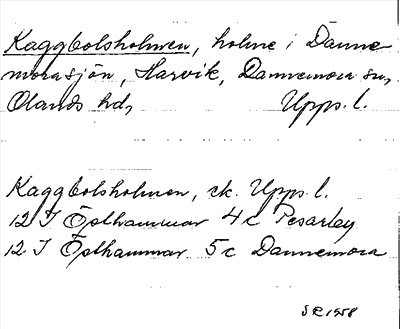 Kaggbolsholmen, holme i Danne-
morasjön, Harvik, Dannemora sn,
Olands hd, Upps. l.
Kaggbolsholmen, ek. Upps. l.
12 I Östhammar 4c
12 I Östhammar 5c Dannemora
1958